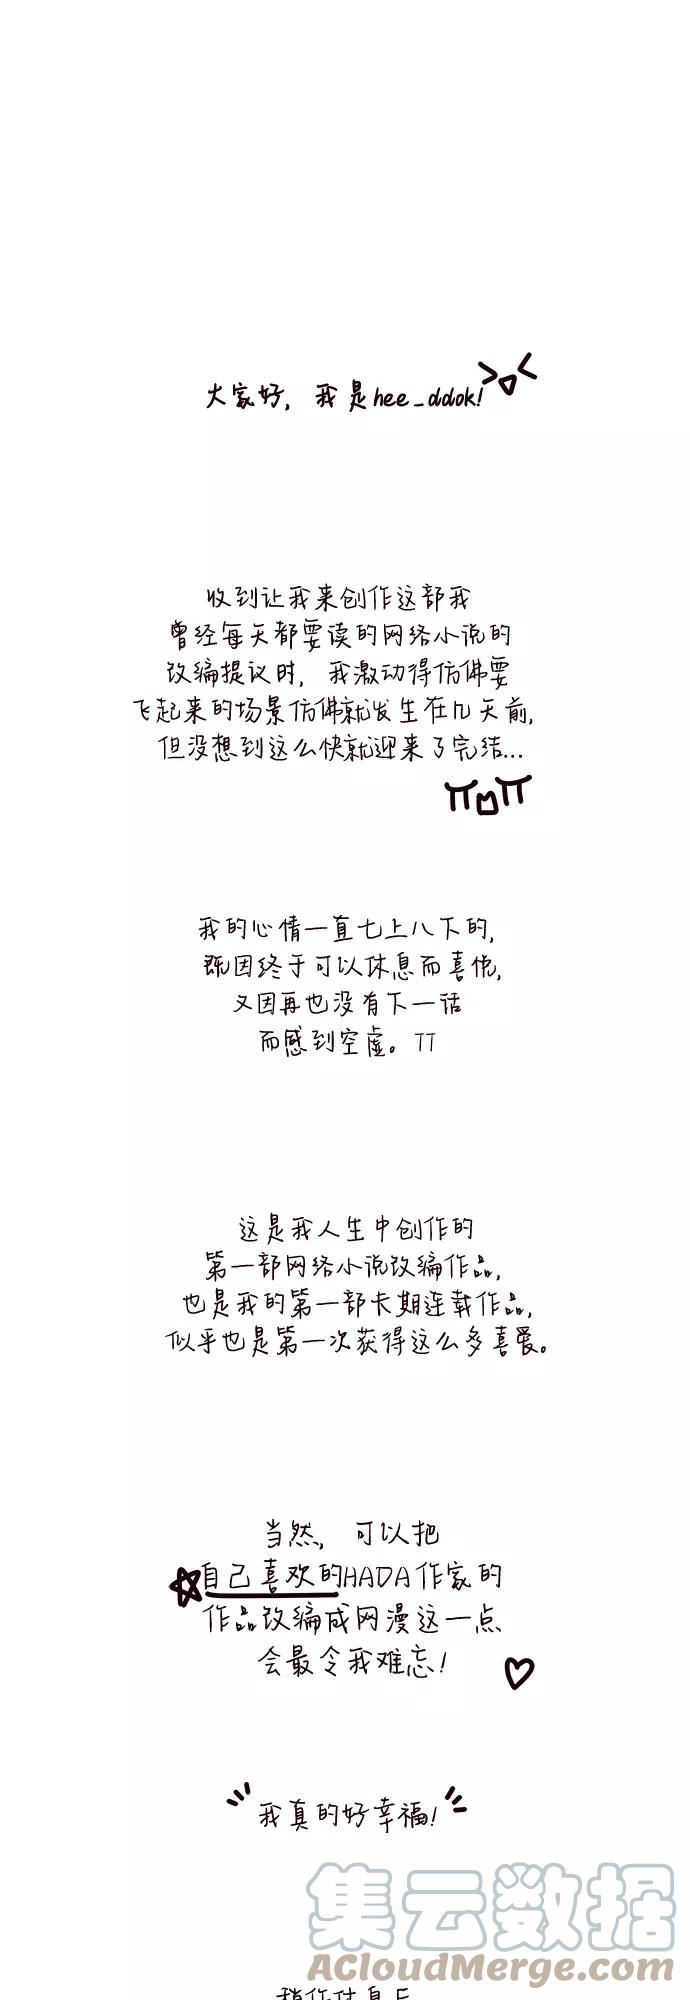 大家好，我是hee_ddok!
收到让我来创作这部我
曾经每天都要读的网络小说的
改编提议时，我激动得仿佛要
飞起来的场景仿佛就发生在几天前，
但没想到这么快就迎来了完结...
我的心情一直七上八下的，
既因终于可以休息而喜悦，
又因再也没有下一话
而感到空虚。TT
这是我人生中创作的
第一部网络小说改编作品，
也是我的第一部长期连载作品，
似乎也是第一次获得这么多喜爱。
当然，可以把
自己喜欢的HADA作家的
作品改编成网漫这一点
会最令我难忘！
我真的好幸福！
集云数据
ACloudMerge.com